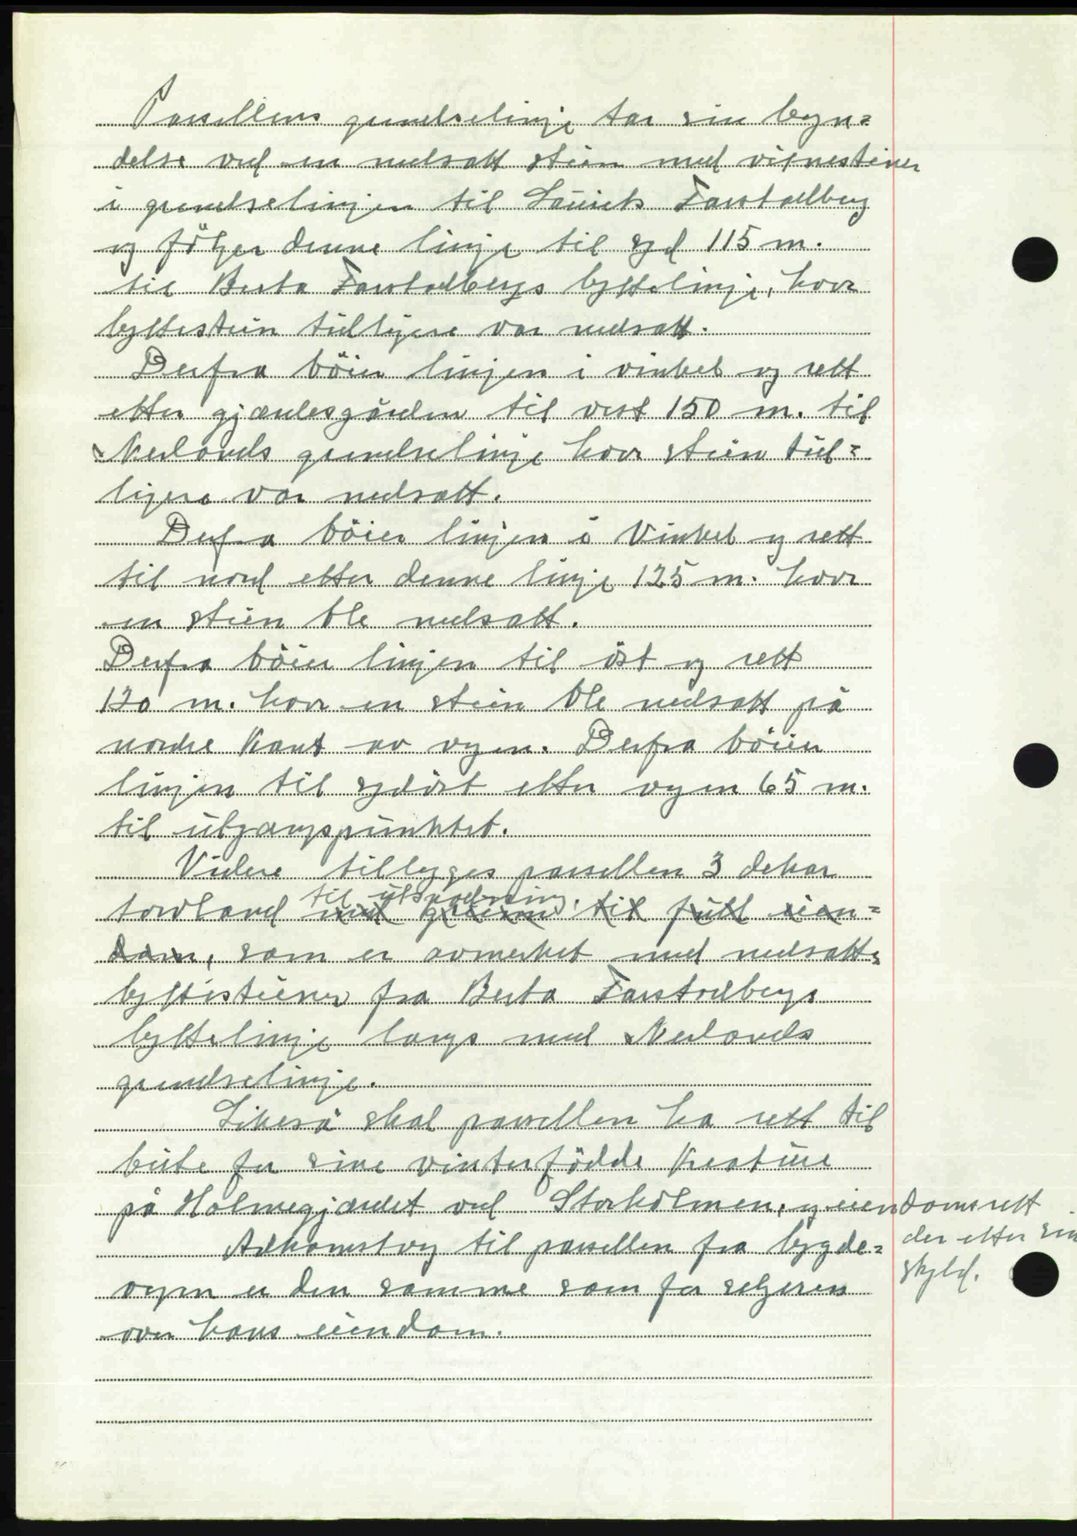 Parsellens grendselinje tar sin begyn=
delse ved en nedsatt stein med vitnesteiner
i grendselinjen til Laurits Farstadberg
og følger denne linje til syd 115 m.
til Berta Farstadbergs byttelinje, hvor
byttestein tidligere var nedsatt.
Derfra böier linjen i vinkel og rett
etter gjerdesgården til vest 150 m. til
Nerlands grendselinje hvor stein tid=
ligere var nedsatt.
Derfra böier linjen i Vinkel og rett
til nord etter denne linje 125 m. hvor
en stein ble nedsatt.
Derfra böier linjen til öst og rett
120 m. hvor en stein ble nedsatt på
nordre kant av vegen. Derfra böier
linjen til sydöst etter vegen 65 m.
til utgangspunktet.
Videre tillegges parsellen 3 dekar
til utspadning.
torvland med grunn til full eien=
dom, som er avmerket med nedsatte
byttesteiner fra Berta Farstadbergs
byttelinje langs med Nerlands
grendselinje.
Likeså skal parsellen ha rett til
beite for sine vinterfödde kreature
på Holmegjærdet ved Storholmen, og eiendomsrett
der etter sin
skyld.
Adkomstveg til parsellen fra bygde=
vegen er den samme som for selgeren
over hans eiendom.